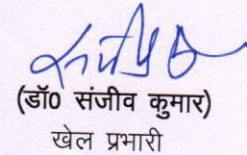 (डॉ0 संजीव कुमार)
खेल प्रभारी